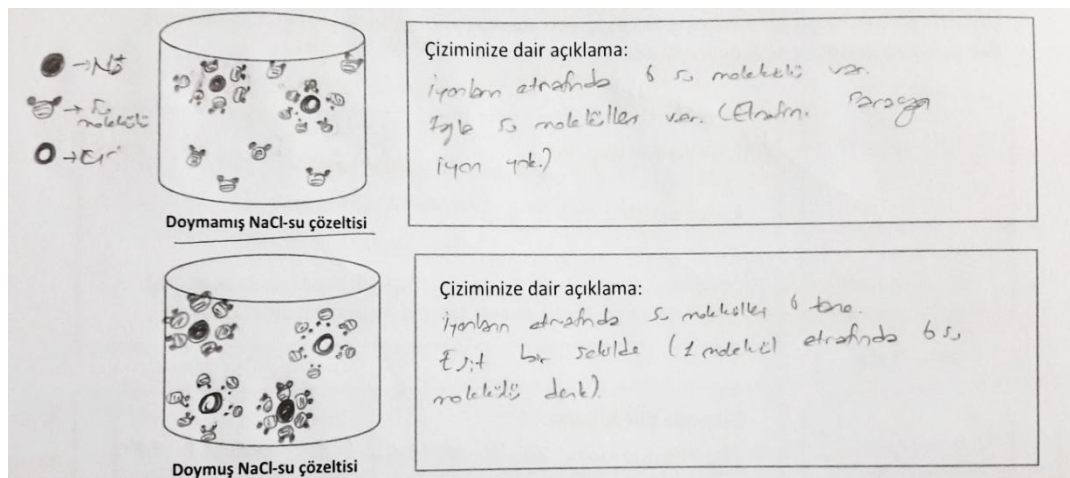 → Na⁺
→ su
molekülü
→ Cl⁻
Doymamış NaCl-su çözeltisi
Çiziminize dair açıklama:
İyonların etrafında 6 su molekülü var.
su molekülleri var. (Etrafını saracağı
iyon yok.)
Doymuş NaCl-su çözeltisi
Çiziminize dair açıklama:
İyonların etrafında su molekülleri 6 tane.
Eşit bir şekilde (1 molekül etrafında 6 su
molekülü denk).